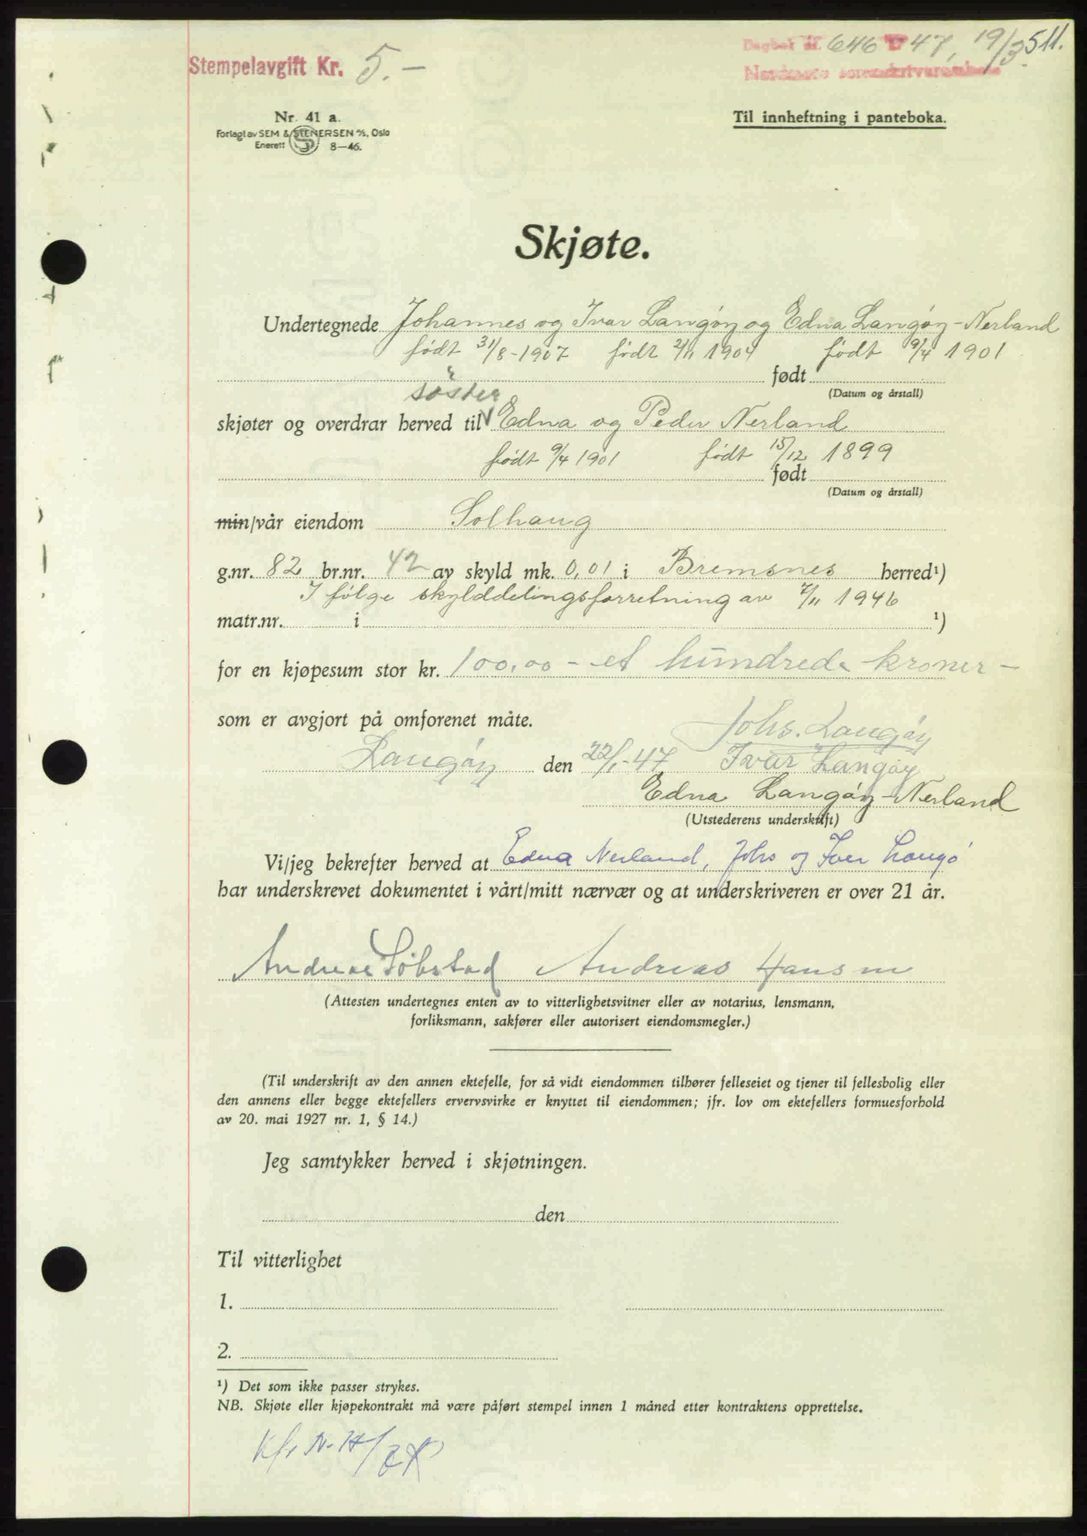 Stempelavgift Kr. 5.-
Dagbok nr. 646 47, 19/3 511.
Nordmøre sorenskriverembede
Nr. 41 a.
Forlagt av SEM & STENERSEN A/S, Oslo
Enerett 8—46.
Til innheftning i panteboka.
Skjøte.
Undertegnede Johannes og Ivar Langøy og Edna Langøy-Nerland
født 31/8-1907 født 2/11 1904 født 9/4 1901
født
(Datum og årstall)
søster
skjøter og overdrar herved til Edna og Peder Nerland
født 9/4 1901 født 15/12 1899
født
(Datum og årstall)
min/vår eiendom Solhaug
g.nr. 82 br.nr. 42 av skyld mk. 0,01 i Bremsnes herred¹)
I følge skylddelingsforretning av 7/11 1946
matr.nr. i ¹)
for en kjøpesum stor kr. 100,00 - et hundrede kroner -
som er avgjort på omforenet måte.
Johs. Langøy
Langøy den 22/1-47 Ivar Langøy
Edna Langøy-Nerland
(Utstederens underskrift)
Vi/jeg bekrefter herved at Edna Nerland, Johs og Iver Langø
har underskrevet dokumentet i vårt/mitt nærvær og at underskriveren er over 21 år.
Andreas Hansen
(Attesten undertegnes enten av to vitterlighetsvitner eller av notarius, lensmann,
forliksmann, sakfører eller autorisert eiendomsmegler.)
(Til underskrift av den annen ektefelle, for så vidt eiendommen tilhører felleseiet og tjener til fellesbolig eller
den annens eller begge ektefellers ervervsvirke er knyttet til eiendommen; jfr. lov om ektefellers formuesforhold
av 20. mai 1927 nr. 1, § 14.)
Jeg samtykker herved i skjøtningen.
den
Til vitterlighet
1.
2.
¹) Det som ikke passer strykes.
NB. Skjøte eller kjøpekontrakt må være påført stempel innen 1 måned etter kontraktens opprettelse.